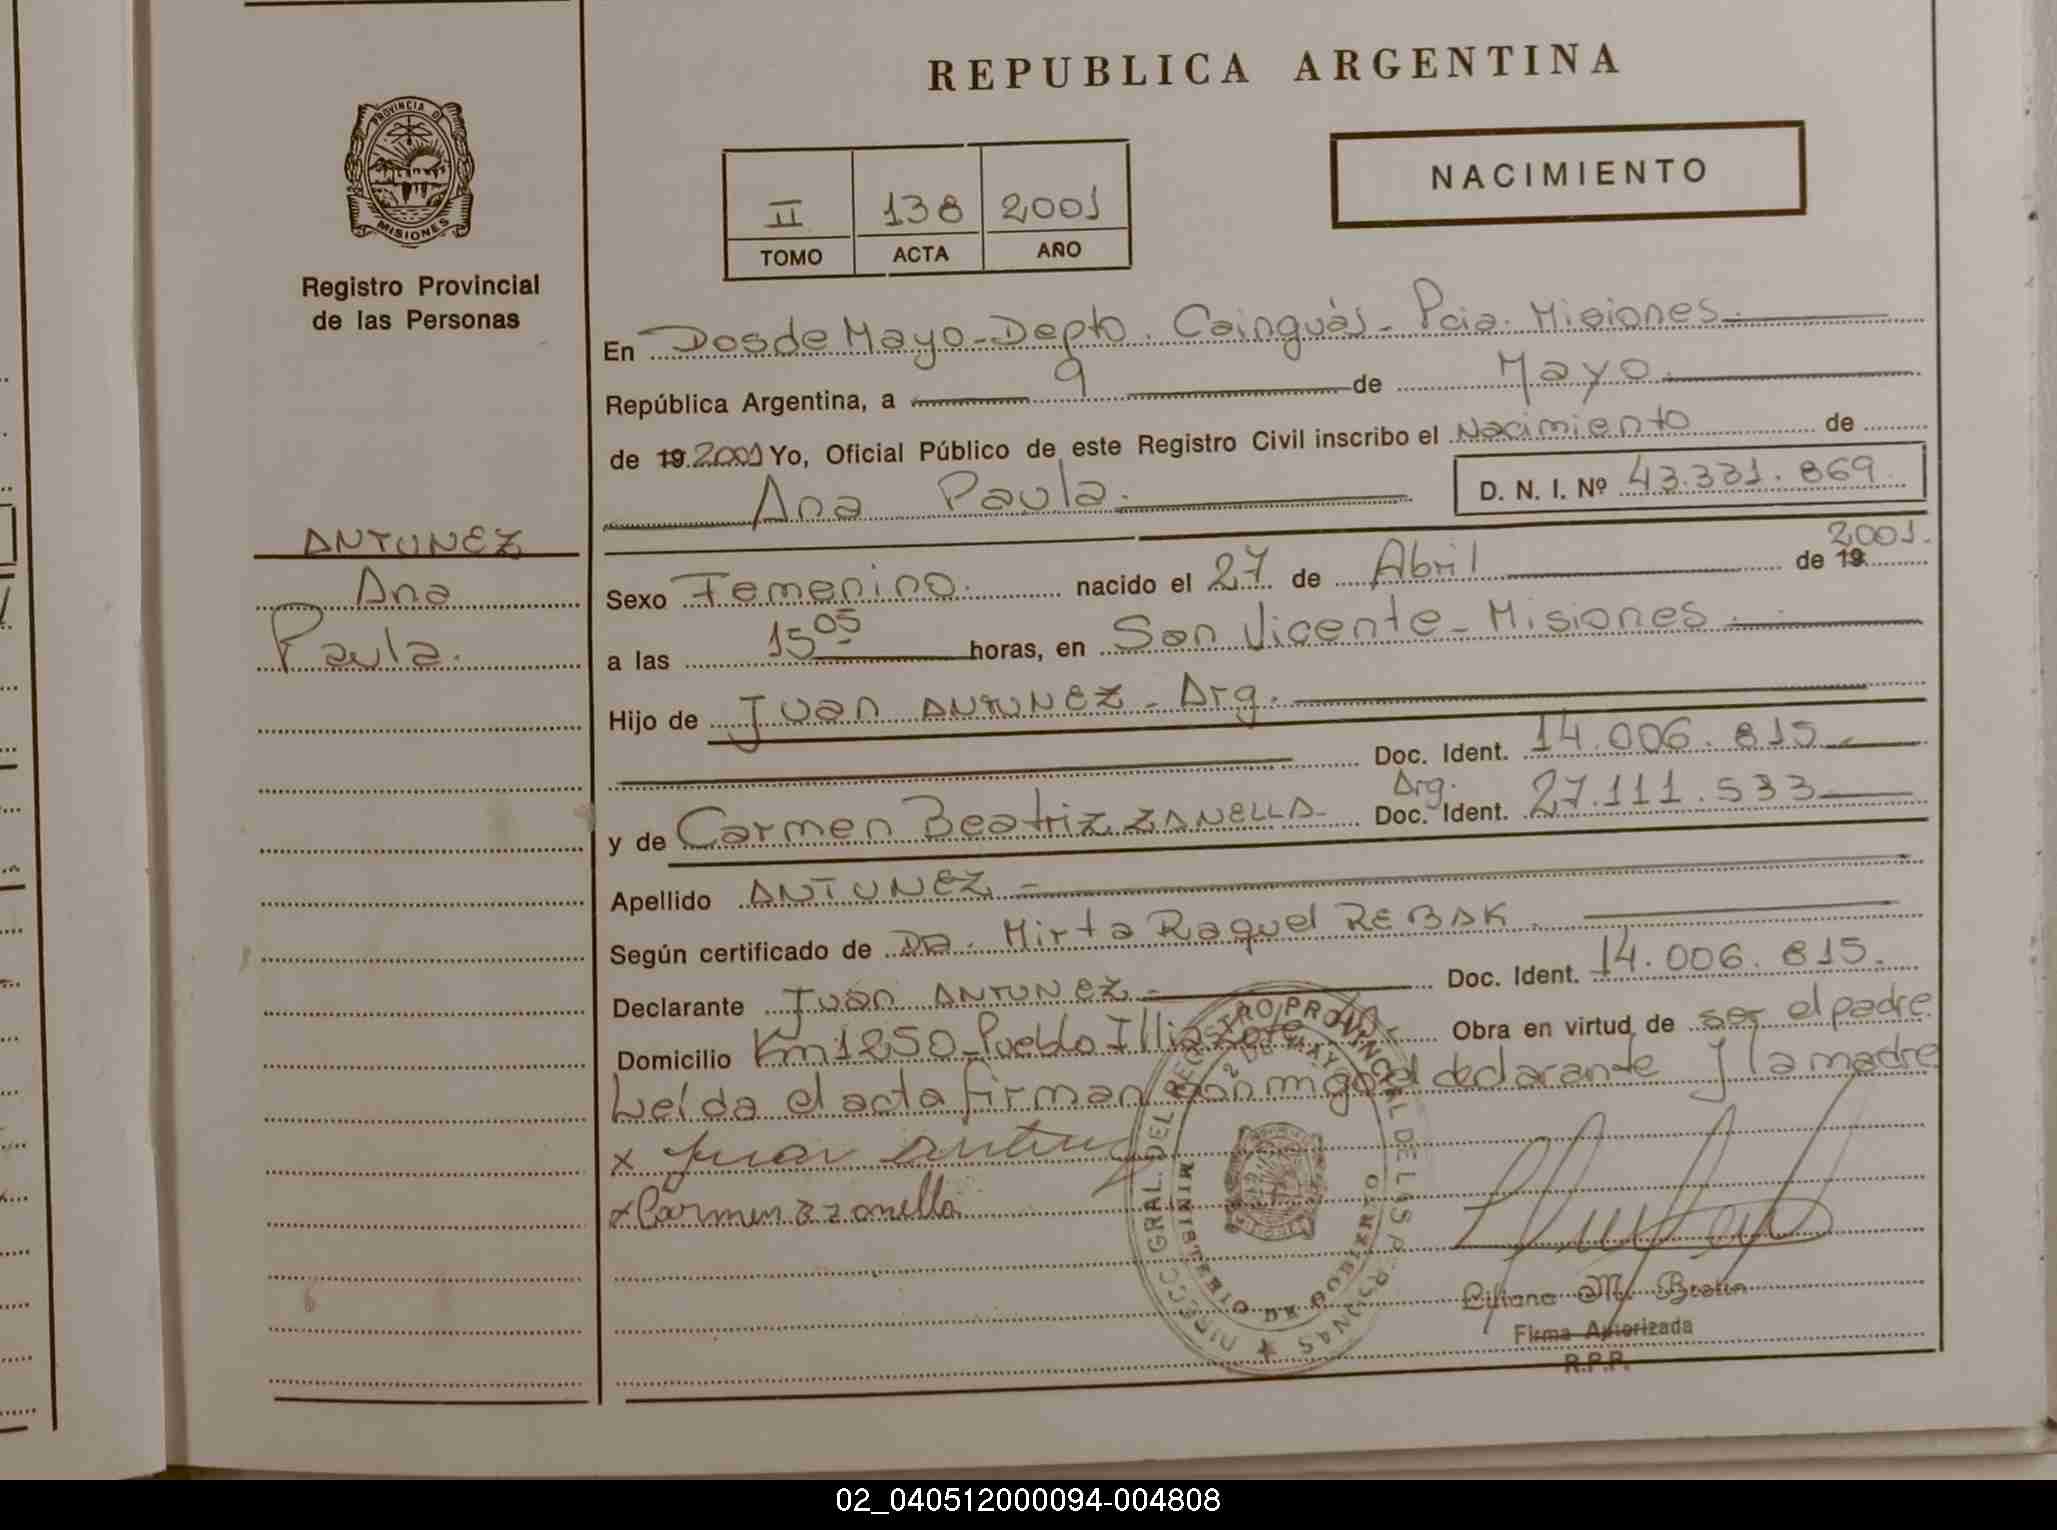 REPUBLICA ARGENTINA
PROVINCIA DE
MISIONES
Registro Provincial
de las Personas
NACIMIENTO
II 138 2001
TOMO ACTA AÑO
En Dos de Mayo - Depto. Cainguás - Pcia. Misiones.
República Argentina, a 9 de Mayo
de 19 2001 Yo, Oficial Público de este Registro Civil inscribo el Nacimiento de
Ana Paula. D. N. I. Nº 43.331.869.
ANTUNEZ
Ana
Paula.
Sexo Femenino. nacido el 27 de Abril de 19 2001.
a las 15 05 horas, en San Vicente - Misiones
Hijo de Juan ANTUNEZ - Arg.
Doc. Ident. 14.006.815
Arg.
y de Carmen Beatriz ZANELLA - Doc. Ident. 27.111.533
Apellido ANTUNEZ -
Según certificado de Dra. Mirta Raquel REBAK.
Declarante Juan ANTUNEZ - Doc. Ident. 14.006.815.
Domicilio Km 1250 - Pueblo Illia Obra en virtud de ser el padre
Leída el acta firman conmigo el declarante y la madre
x Juan Antunez
x Carmen B zanella
DIRECC. GRAL. DEL REGISTRO PROVINCIAL DE LAS PERSONAS
MINISTERIO DE GOBIERNO
2 DE MAYO
Liliana M.
Firma Autorizada
R.P.P.
02_040512000094-004808